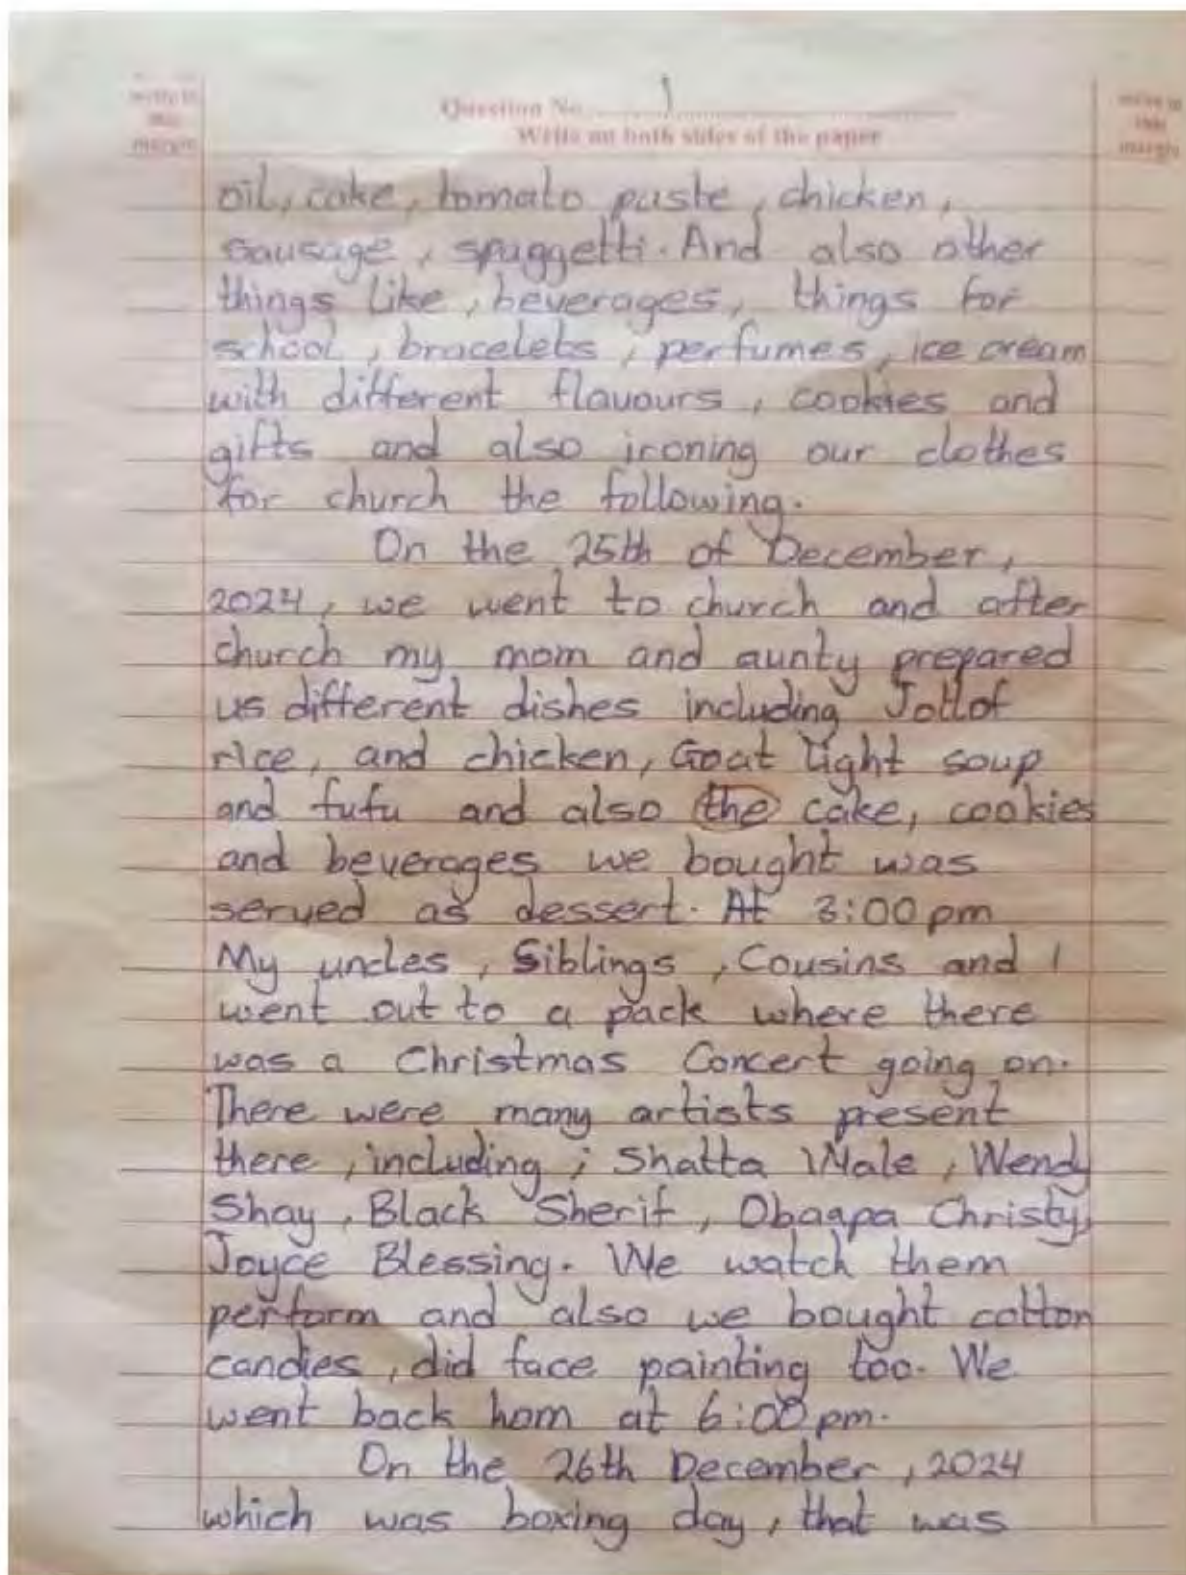 write in
this
margin
Question No. 1
Write on both sides of the paper
write in
this
margin
oil, cake, tomato paste, chicken,
sausage, spaggetti. And also other
things like, beverages, things for
school, bracelets, perfumes, ice cream
with different flavours, cookies and
gifts and also ironing our clothes
for church the following.
On the 25th of December,
2024, we went to church and after
church my mom and aunty prepared
us different dishes including Jollof
rice, and chicken, Goat light soup
and fufu and also the cake, cookies
and beverages we bought was
served as dessert. At 3:00pm
My uncles, Siblings, Cousins and I
went out to a pack where there
was a Christmas Concert going on.
There were many artists present
there, including; Shatta Wale, Wendy
Shay, Black Sherif, Obaapa Christy,
Joyce Blessing. We watch them
perform and also we bought cotton
candies, did face painting too. We
went back hom at 6:00pm.
On the 26th December, 2024
which was boxing day, that was